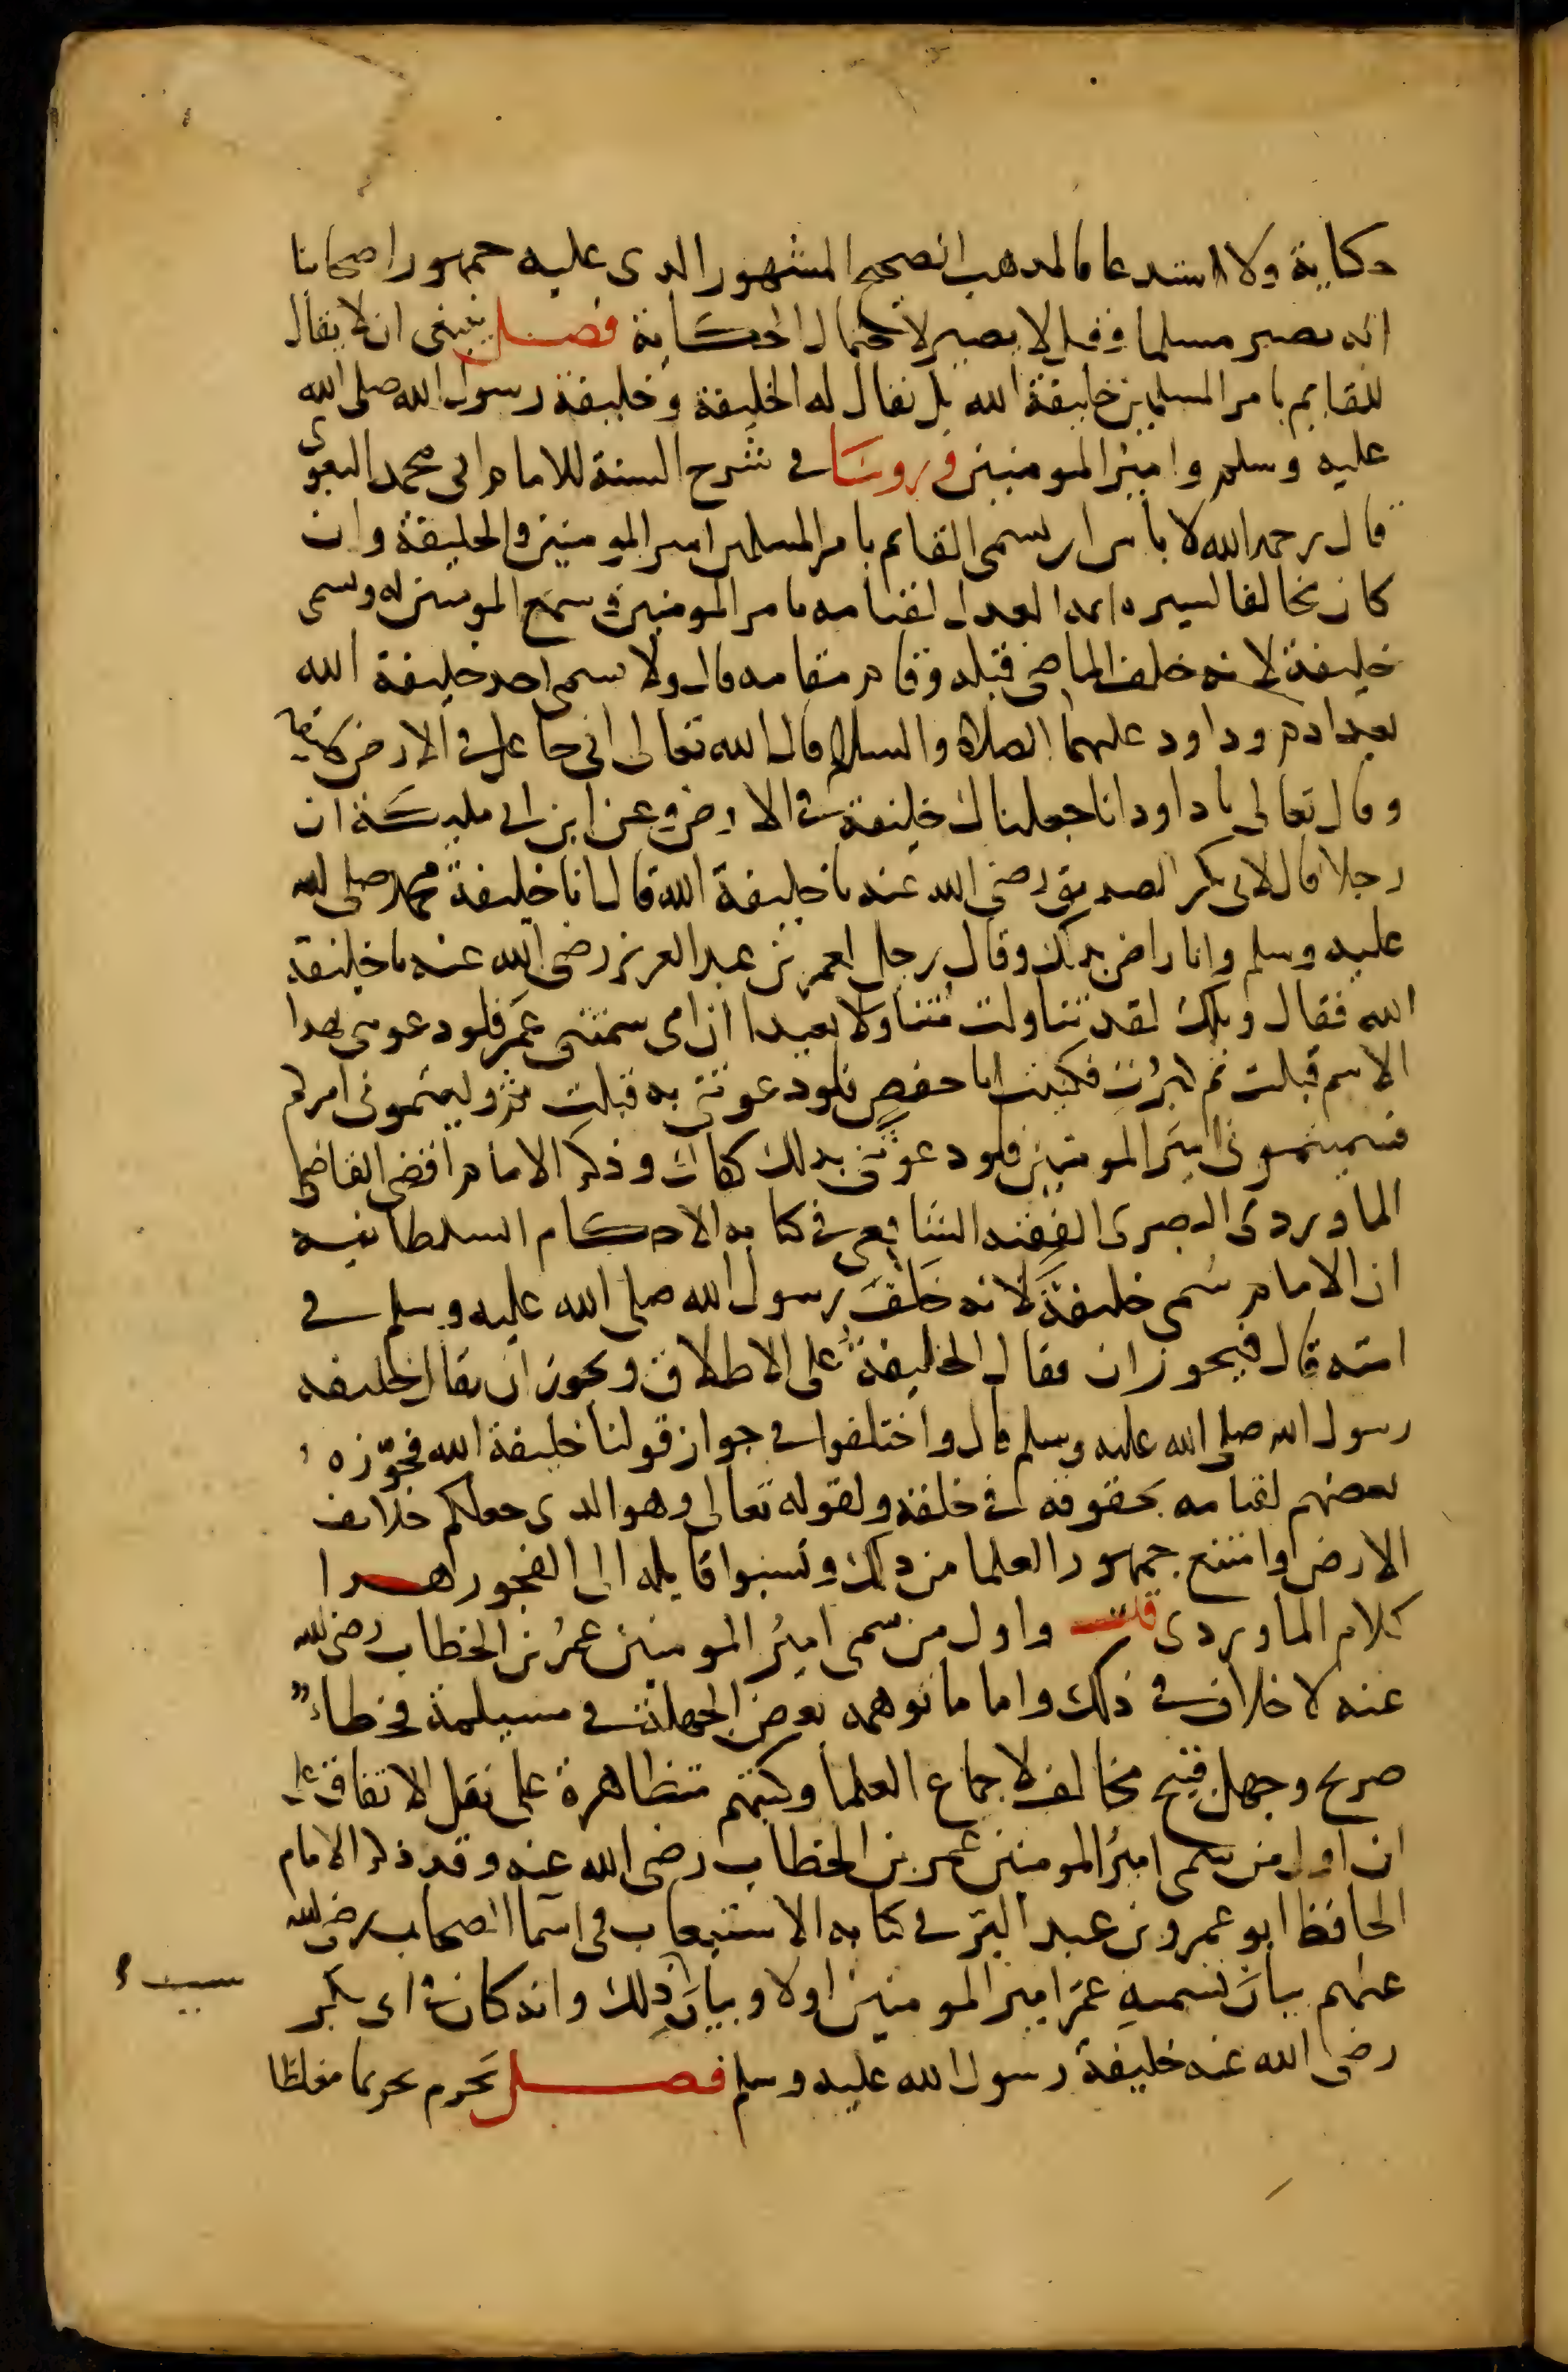 حكاية ولا استدعا فالمذهب الصحيح المشهور الدى عليه جمهور اصحابنا
انه يصير مسلما وقيل لا يصير لاحتمال الحكاية فصل ينبغى ان لا يقال
للقايم بامر المسلمين خليفة الله بل يقال له الخليفة وخليفة رسول الله صلى الله
عليه وسلم وامير المومنين وروينا فى شرح السنة للامام ابى محمد البغوى
قال رحمه الله لا باس ان يسمى القايم بامر المسلمين امير المومنين والخليفة وان
كان مخالفا لسيره ايمة العدل لقيامه بامر المومنين وسمع المومنين له ويسمى
خليفة لانه خلف الماضى قبله وقام مقامه قال ولا يسمى احد خليفة الله
بعد ادم وداود عليهما الصلاة والسلام قال الله تعالى انى جاعل فى الارض خليفة
وقال تعالى يا داود انا جعلناك خليفة فى الارض وعن ابن ابى مليكة ان
رجلا قال لابى بكر الصديق رضى الله عنه يا خليفة الله قال انا خليفة محمد صلى الله
عليه وسلم وانا راض بذلك وقال رجل لعمر بن عبد العزيز رضى الله عنه يا خليفة
الله فقال ويلك لقد تناولت متناولا بعيدا ان امى سمتنى عمر فلو دعوتنى بهدا
الاسم قبلت ثم كبرت فكنيت ابا حفص فلو دعوتنى به قبلت ثم وليتمونى امركم
فسميتمونى امير المومنين فلو دعوتنى بدلك كفاك وذكر الامام اقضى القاضى
الماوردى البصرى الفقيه الشافعى فى كتابه الاحكام السلطانيه
ان الامام سُمى خليفة لانه خَلَفَ رسول الله صلى الله عليه وسلم فى
امته قال فيجوز ان يقال الخليفة على الاطلاق ويجوز ان يقال خليفه
رسول الله صلى الله عليه وسلم قال واختلفوا فى جواز قولنا خليفة الله فجوّزه
بعضهم لقيامه بحقوقه فى خلقه ولقوله تعالى وهو الدى جعلكم خلايف
الارض وامتنع جمهور العلما من دلك ونسبوا قايله الى الفجور هدا
كلام الماوردى قلت واول من سمى اميرُ المومنين عمرُ بن الخطاب رضى الله
عنه لا خلاف فى ذلك واما ما توهمه بعض الجهلة فى مسيلمة فخطاء
صريح وجهل قبيح مخالف لاجماع العلما وكتبهم متظاهرة على نقل الاتفاق على
ان اول من سمى اميرُ المومنين عمر بن الخطاب رضى الله عنه وقد ذكر الامام
الحافظ ابو عمرو بن عبد البرّ فى كتابه الاستيعاب فى اسما الصحابه رضى الله
عنهم بيان تسميه عمر امير المومنين اولا وبيان ذلك وانه كان فى ابى بكر
سبب
رضى الله عنه خليفة رسول الله عليه وسلم فصل يحرم تحريما مغلظا